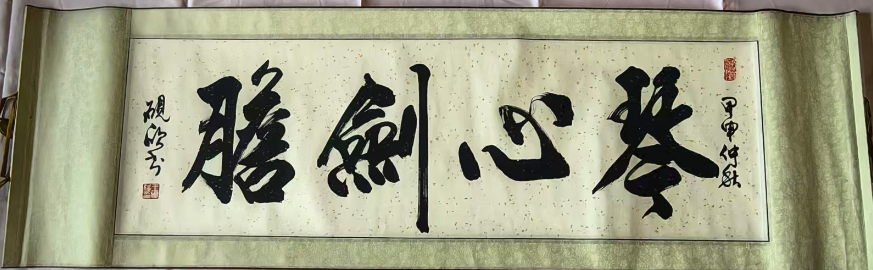 甲申仲秋
琴心劍膽
硯欣书